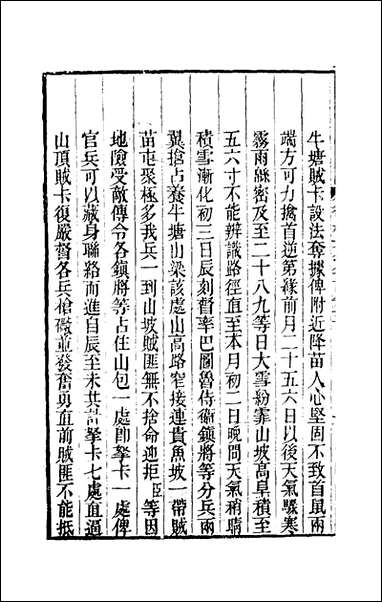 牛塘賊卡設法奪據俾附近降苗人心堅固不致首鼠兩
端方可力擒首逆第緣前月二十五六日以後天氣驟寒
霧雨緜密及至二十八九等日大雪紛霏山坡高阜積至
五六寸不能辨識路徑直至本月初二日晚間天氣稍晴
積雪漸化初三日辰刻督率巴圖魯侍衞鎮將等分兵兩
翼搶占養牛塘山梁該處山高路窄接連貴魚坡一帶賊
苗屯聚極多我兵一到山坡賊匪無不捨命迎拒臣等因
地險受敵傳令各鎮將等占住山包一處卽拏卡一處俾
官兵可以藏身聯絡而進自辰至未共計拏卡七處直逼
山頂賊卡復嚴督各兵槍礟並發奮勇直前賊匪不能抵